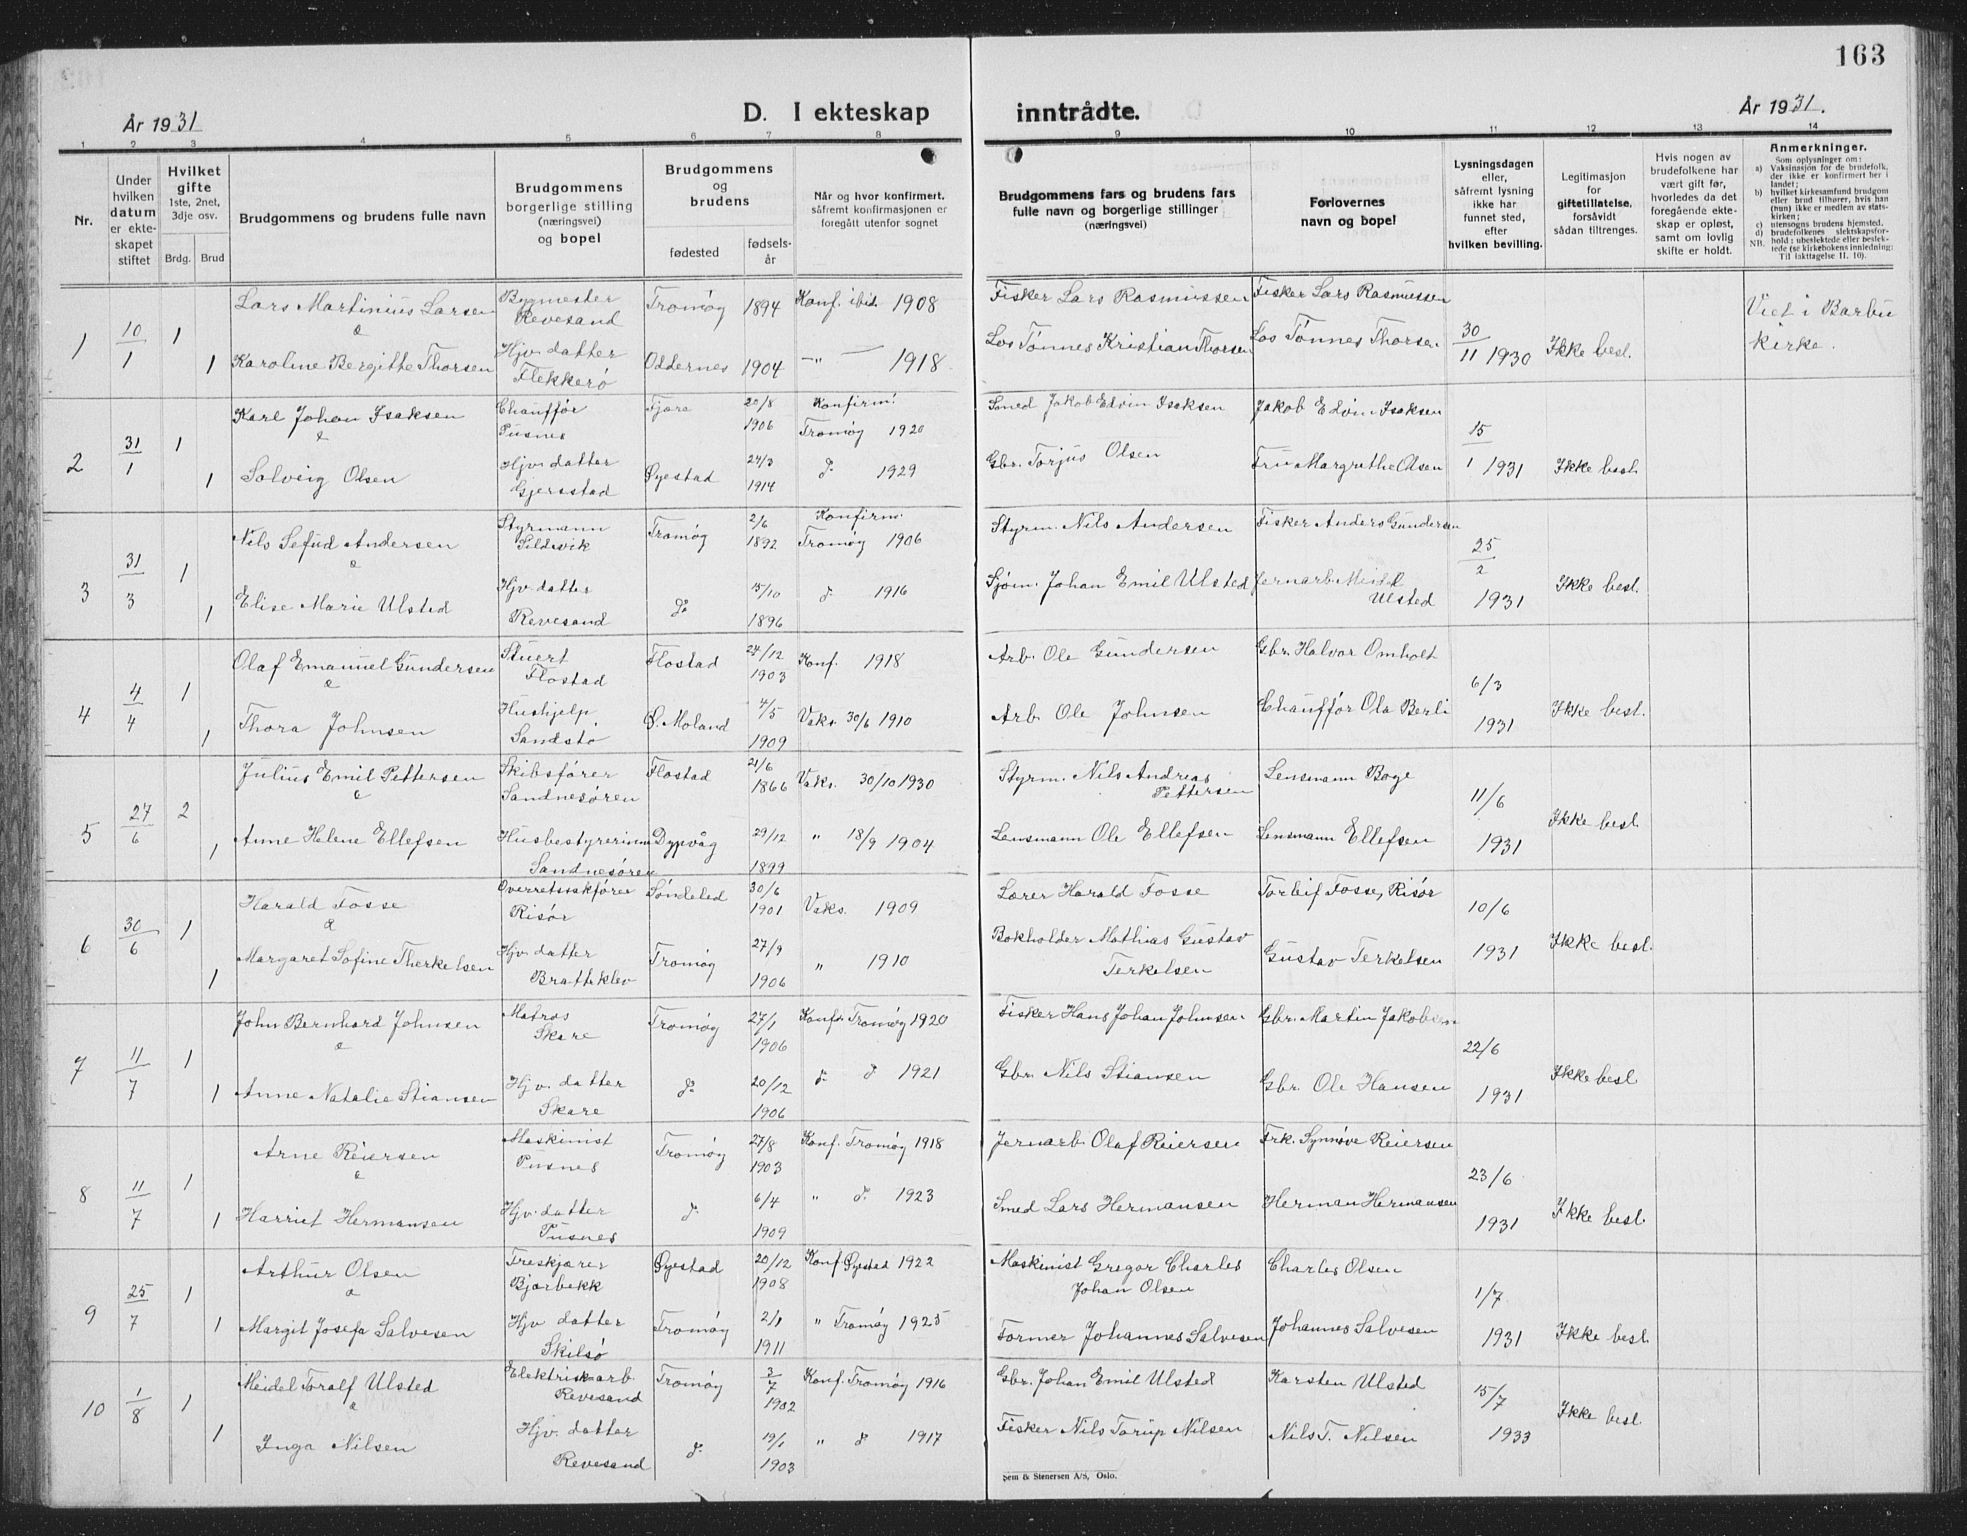 163
År 1931
D. I ekteskap inntrådte.
År 1931.
1 2 3 4 5 6 7 8 9 10 11 12 13 14
Nr.
Under hvilken datum er ekteskapet stiftet
Hvilket gifte 1ste, 2net, 3dje osv.
Brdg. Brud
Brudgommens og brudens fulle navn
Brudgommens borgerlige stilling (næringsvei) og bopel
Brudgommens og brudens
fødested
fødselsår
Når og hvor konfirmert.
såfremt konfirmasjonen er foregått utenfor sognet
Brudgommens fars og brudens fars fulle navn og borgerlige stillinger (næringsvei)
Forlovernes navn og bopel
Lysningsdagen eller, såfremt lysning ikke har funnet sted, efter hvilken bevilling.
Legitimasjon for giftetillatelse, forsåvidt sådan tiltrenges.
Hvis nogen av brudefolkene har vært gift før, hvorledes da det foregående ekteskap er opløst, samt om lovlig skifte er holdt.
Anmerkninger.
Som oplysninger om:
a) Vaksinasjon for de brudefolk, der ikke er konfirmert her i landet;
b) hvilket kirkesamfund brudgom eller brud tilhører, hvis han (hun) ikke er medlem av statskirken;
c) utensogns brudens hjemsted.
d) brudefolkenes slektskapsforhold: ubeslektede eller beslektede (se kirkebokens innledning:
NB. Til iakttagelse II. 10).
1 10/1 1 Lars Martinius Larsen Bygmester Revesand Tromøy 1894 Konf. ibid. 1908 Fisker Lars Rasmussen Fisker Lars Rasmussen 30/11 1930 Ikke besl. Viet i Barbu kirke.
&
1 Karoline Bergitte Thorsen Hjv. datter Flekkerø Oddernes 1904 —"— 1918 Los Tønnes Kristian Thorsen Los Tønnes Thorsen
2 31/1 1 Karl Johan Isaksen Chauffør Pusnes Fjære 20/8 1906 Konfirm. Tromøy 1920 Smed Jakob Edvin Isaksen Jakob Edvin Isaksen 15/1 1931 Ikke besl.
&
1 Solveig Olsen Hjv. datter Gjersstad Øyestad 24/3 1914 do 1929 Gbr. Torjus Olsen Fru Margrethe Olsen
3 31/3 1 Nils Sefud Andersen Styrmann Sildevik Tromøy 2/6 1892 Konfirm. Tromøy 1906 Styrm. Nils Andersen Fisker Anders Gundersen 25/2 1931 Ikke besl.
&
1 Elise Marie Ulsted Hjv. datter Revesand do 15/10 1896 do 1916 Sjøm. Johan Emil Ulsted Jernarb. Meidel Ulsted
4 4/4 1 Olaf Emanuel Gundersen Stuert Flostad Flostad 24/12 1903 Konf. 1918 Arb. Ole Gundersen Gbr. Halvor Omholt 6/3 1931 Ikke besl.
&
1 Thora Johnsen Hushjelp Sandstø Ø. Moland 4/5 1909 Vaks. 30/6 1910 Arb. Ole Johnsen Chauffør Ola Berli
5 27/6 2 Julius Emil Pettersen Skibsfører Sandnesøren Flostad 21/6 1866 Vaks. 30/10 1930 Styrm. Nils Andreas Pettersen Lensmann Boge 11/6 1931 Ikke besl.
&
1 Anne Helene Ellefsen Husbestyrerinne Sandnesøren Dypvåg 29/12 1899 " 18/9 1904 Lensmann Ole Ellefsen Lensmann Ellefsen
6 30/6 1 Harald Fosse Overretssakfører Risør Søndeled 30/6 1901 Vaks. 1909 Lærer Harald Fosse Torleif Fosse, Risør 10/6 1931 Ikke besl.
&
1 Margaret Sofine Therkelsen Hjv. datter Bratteklev Tromøy 27/9 1906 " 1910 Bokholder Mathias Gustav Terkelsen Gustav Terkelsen
7 11/7 1 John Bernhard Johnsen Matros Skare Tromøy 27/1 1906 Konf. Tromøy 1920 Fisker Hans Johan Johnsen Gbr. Martin Jakobsen 22/6 1931 Ikke besl.
&
1 Anne Natalie Stiansen Hjv. datter Skare do 20/12 1906 do do 1921 Gbr. Nils Stiansen Gbr. Ole Hansen
8 11/7 1 Arne Reiersen Maskinist Pusnes Tromøy 27/8 1903 Konf. Tromøy 1918 Jernarb. Olaf Reiersen Frk. Synnøve Reiersen 23/6 1931 Ikke besl.
&
1 Harriet Hermansen Hjv. datter Pusnes do 6/4 1909 " do 1923 Smed Lars Hermansen Herman Hermansen
9 25/7 1 Arthur Olsen Treskjærer Bjorbekk Øyestad 20/12 1908 Konf Øyestad 1922 Maskinist Gregor Charles Johan Olsen Charles Olsen 1/7 1931 Ikke besl.
&
1 Margit Josefa Salvesen Hjv. datter Skilsø Tromøy 2/1 1911 " Tromøy 1925 Former Johannes Salvesen Johannes Salvesen
10 1/8 1 Meidel Toralf Ulsted Elektrisk arb. Revesand Tromøy 3/7 1902 Konf. Tromøy 1916 Gbr. Johan Emil Ulsted Karsten Ulsted 15/7 1933 Ikke besl.
&
1 Inga Nilsen Hjv. datter Revesand do 19/1 1903 " do 1917 Fisker Nils Torup Nilsen Nils T. Nilsen
Sem & Stenersen A/S, Oslo.